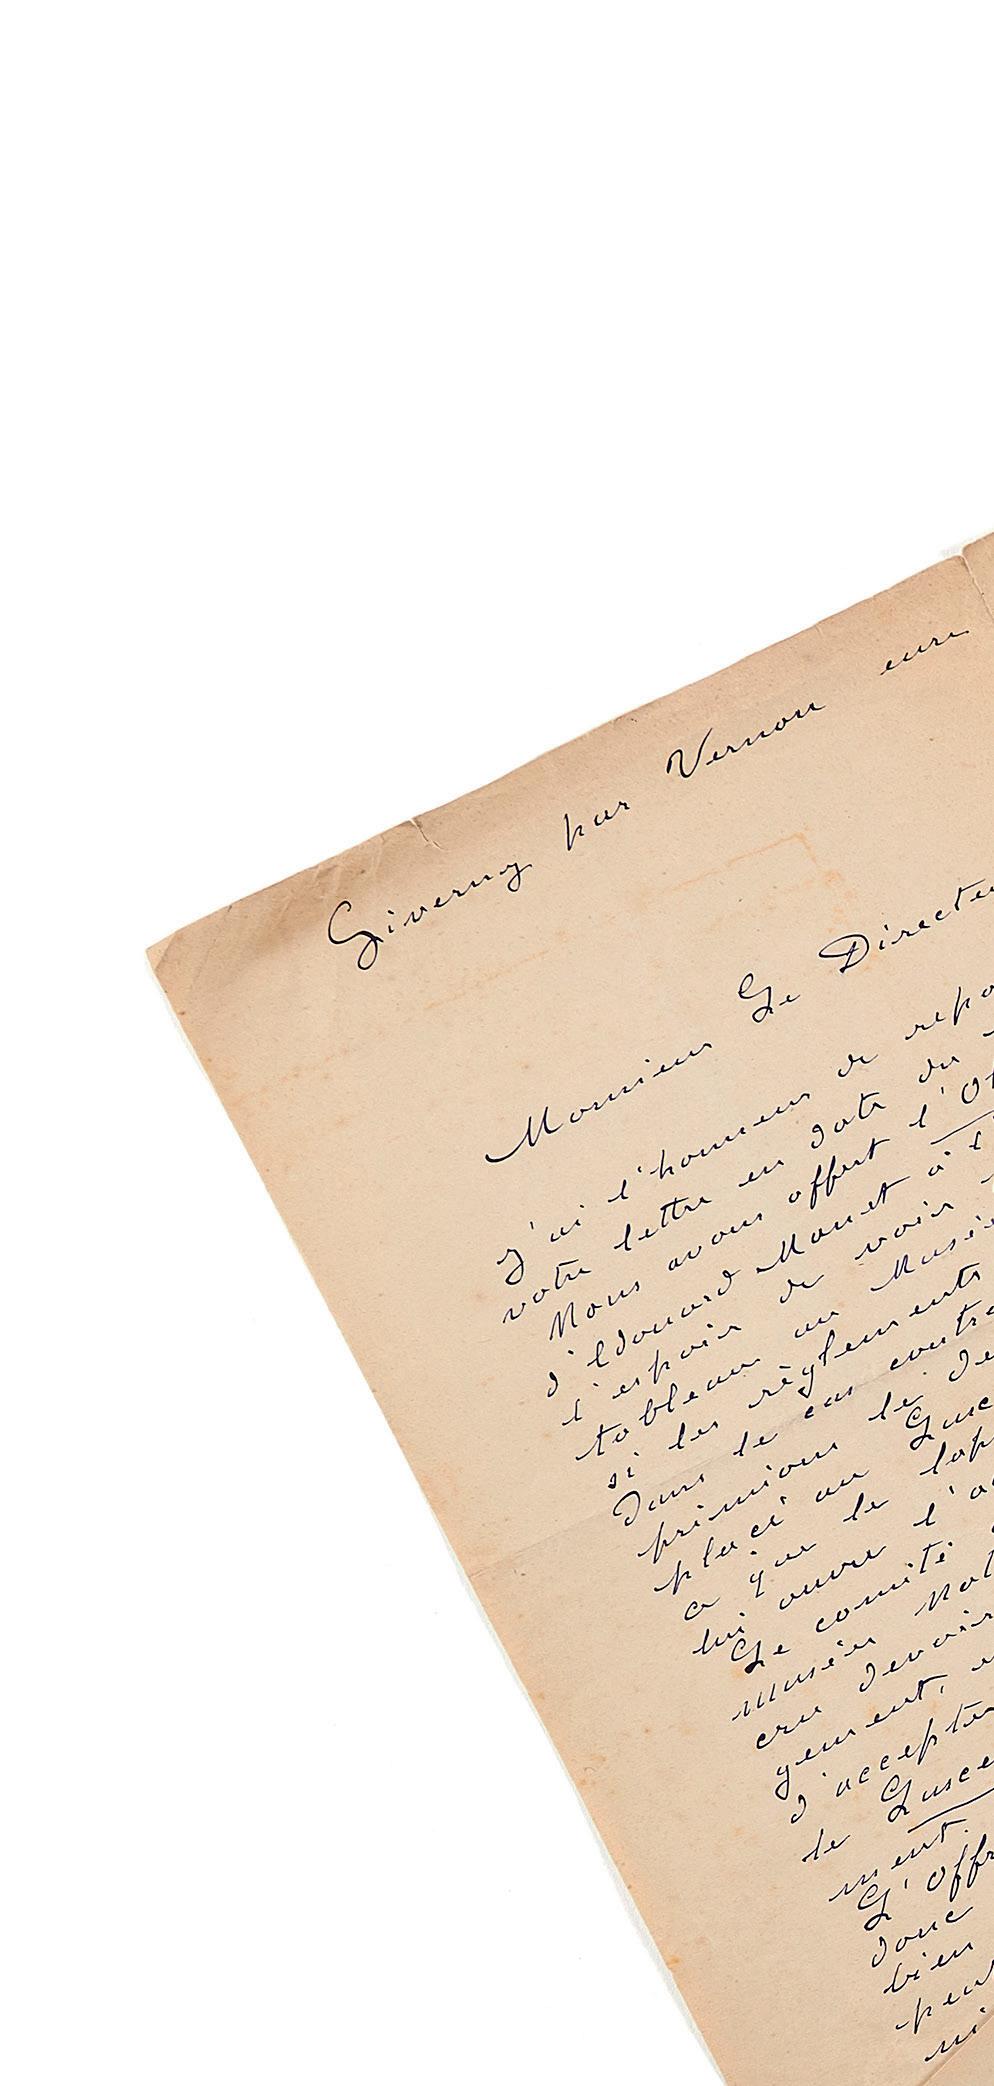 Giverny par Vernon eure
Monsieur Le Directeu
j'ai l'honneur de repo
votre lettre en date du
Nous avons offert l'Ol
d'Edouard Manet à l'
l'espoir de voir
tableau au Musée
si les règlements
Dans le cas contra
primions le de
placé au Luxe
a que le laps
lui ouvre l'a
Le comité
musées Nat
cru devoir
gement,
d'accepter
le Luxe
ment.
L'offr
donc
bien
peut
mi